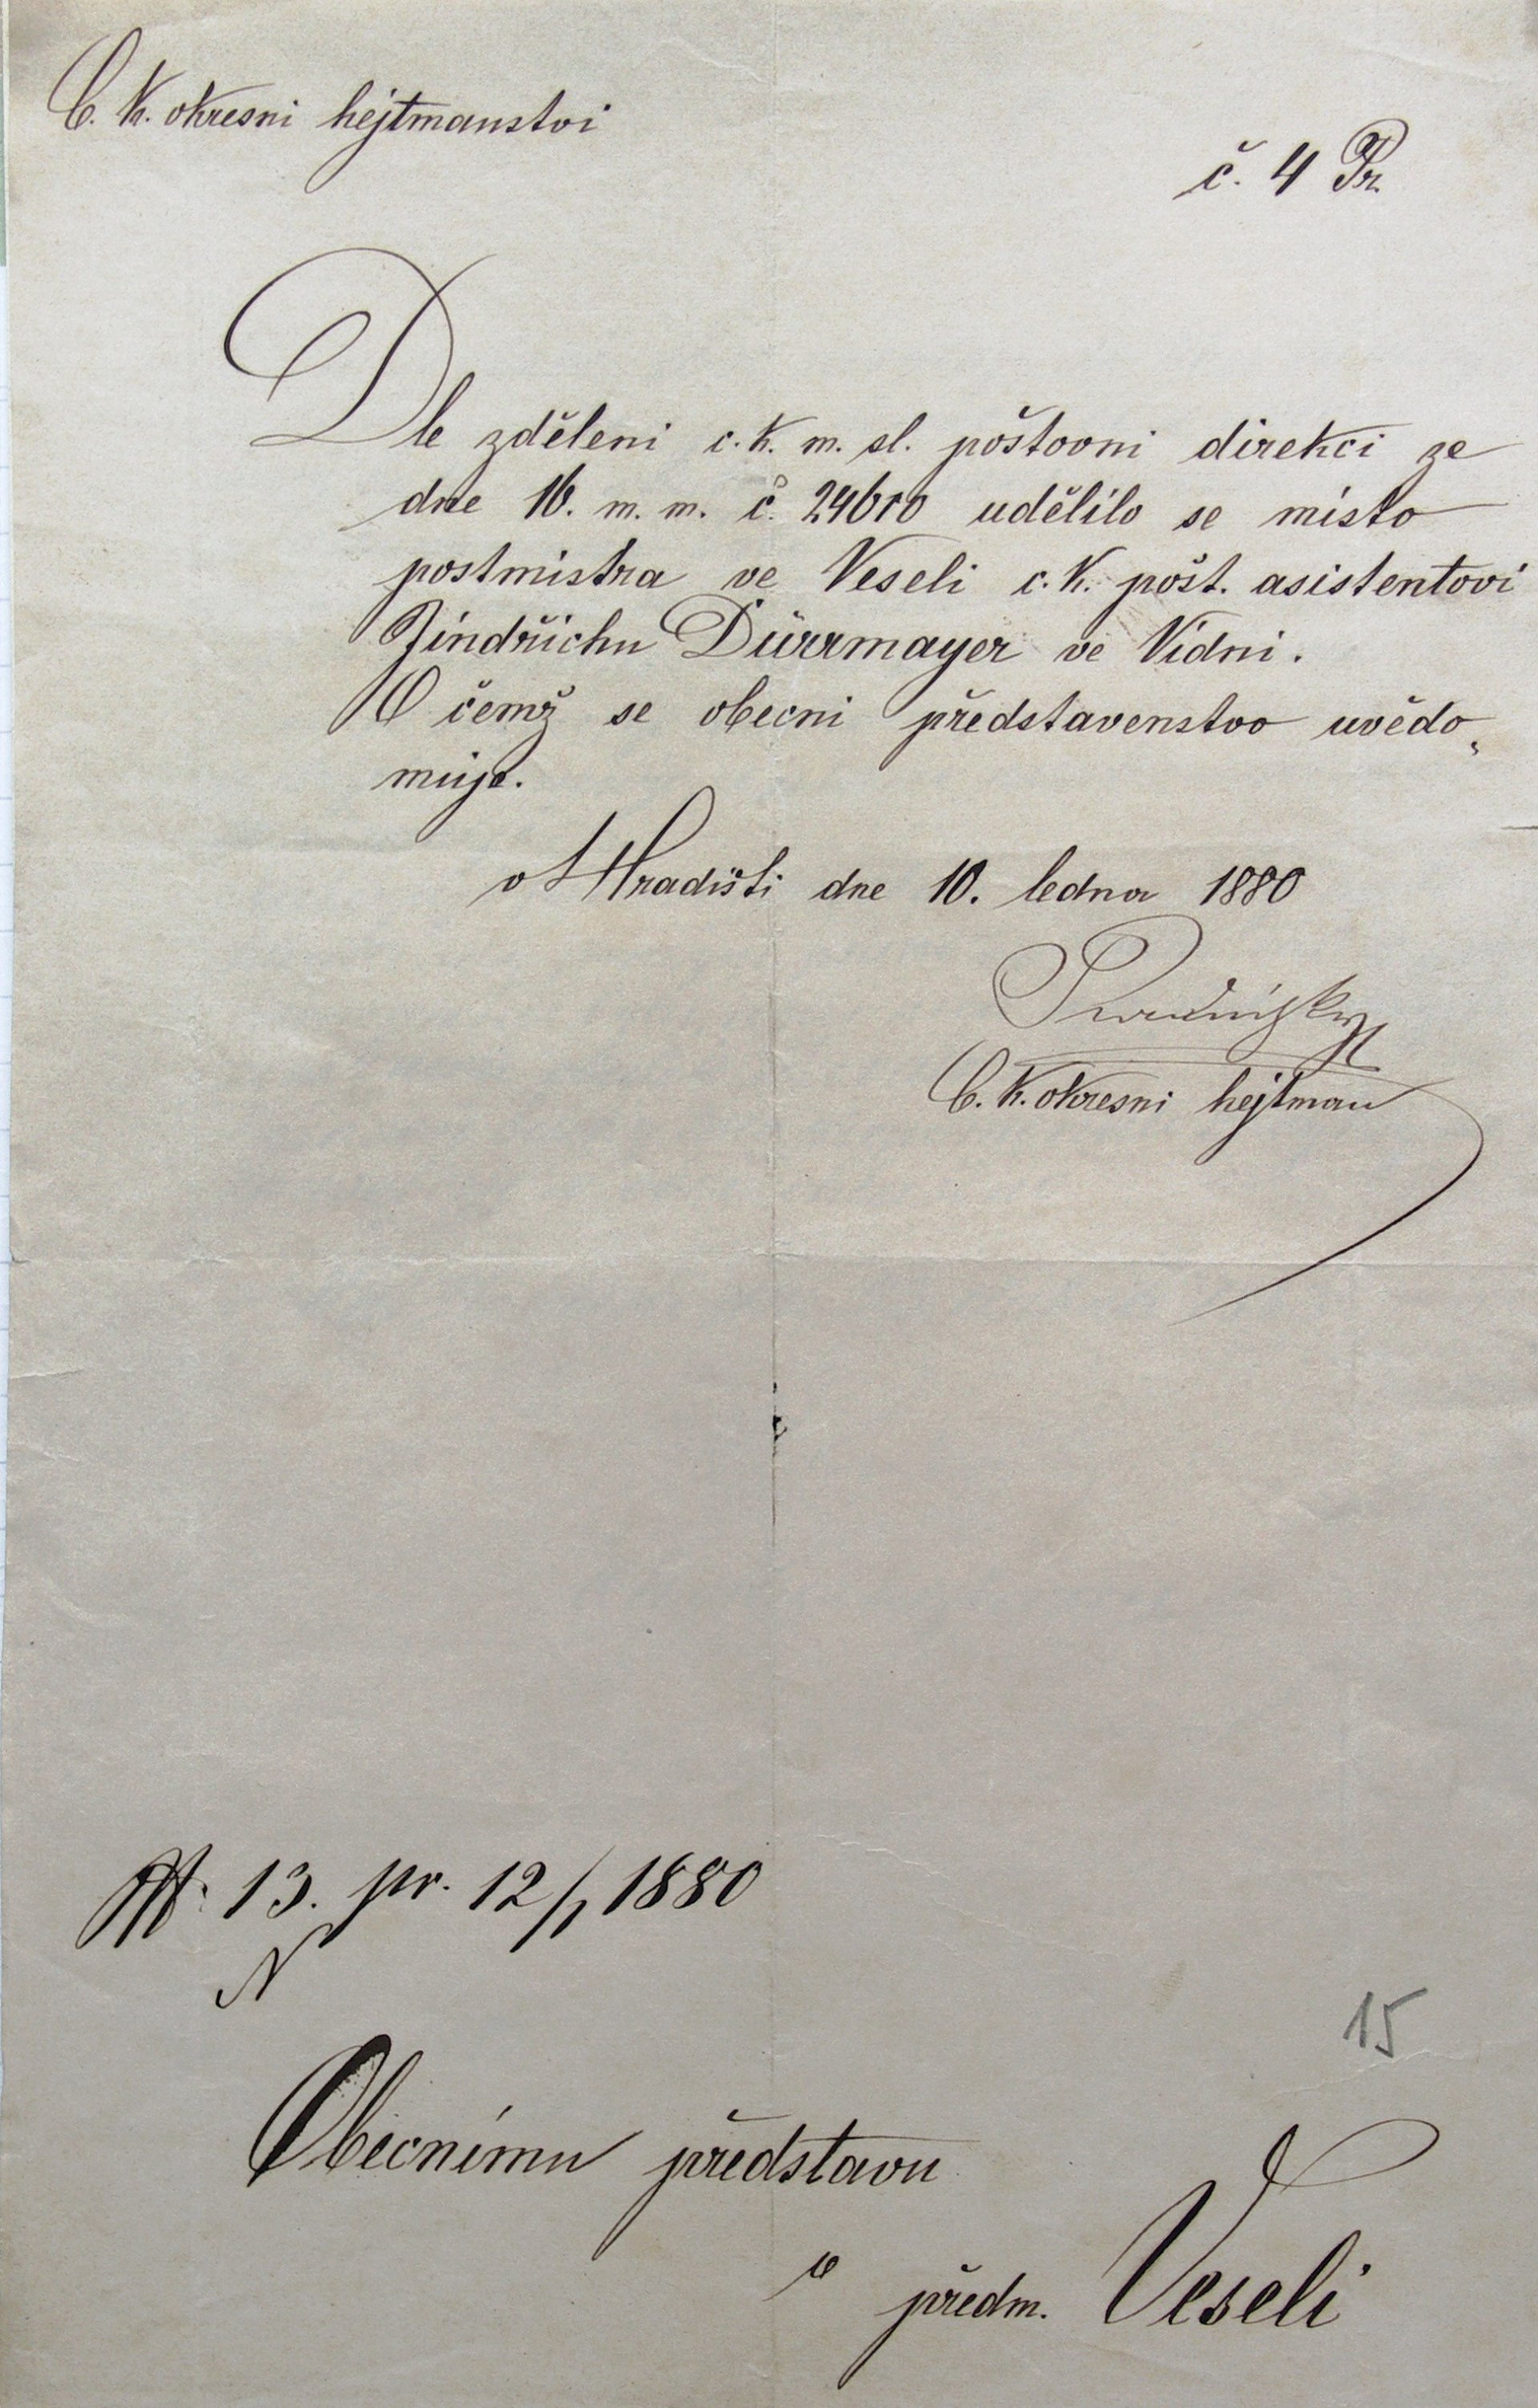 C. k. okresni hejtmanstvi
č. 4 Pr.
Dle zděleni c. k. m. sl. poštovni direkci ze
dne 16. m. m. č. 24610 udělilo se místo
postmistra ve Veseli c. k. pošt. asistentovi
Jindřichu Dürrmayer ve Vídni.
O čemž se obecni představenstvo uvědo„
muje.
v Hradišti dne 10. ledna 1880
C. k. okresni hejtman
13. pr. 12/1 1880
N
15
Obecnímu představu
v předm. Veseli